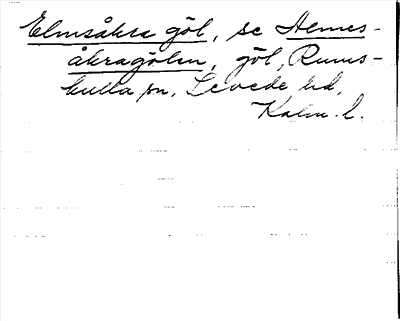 Elmsåkra göl, se Almes-
åkragölen, göl, Rums-
kulla sn, Sevede hd,
Kalm. l.